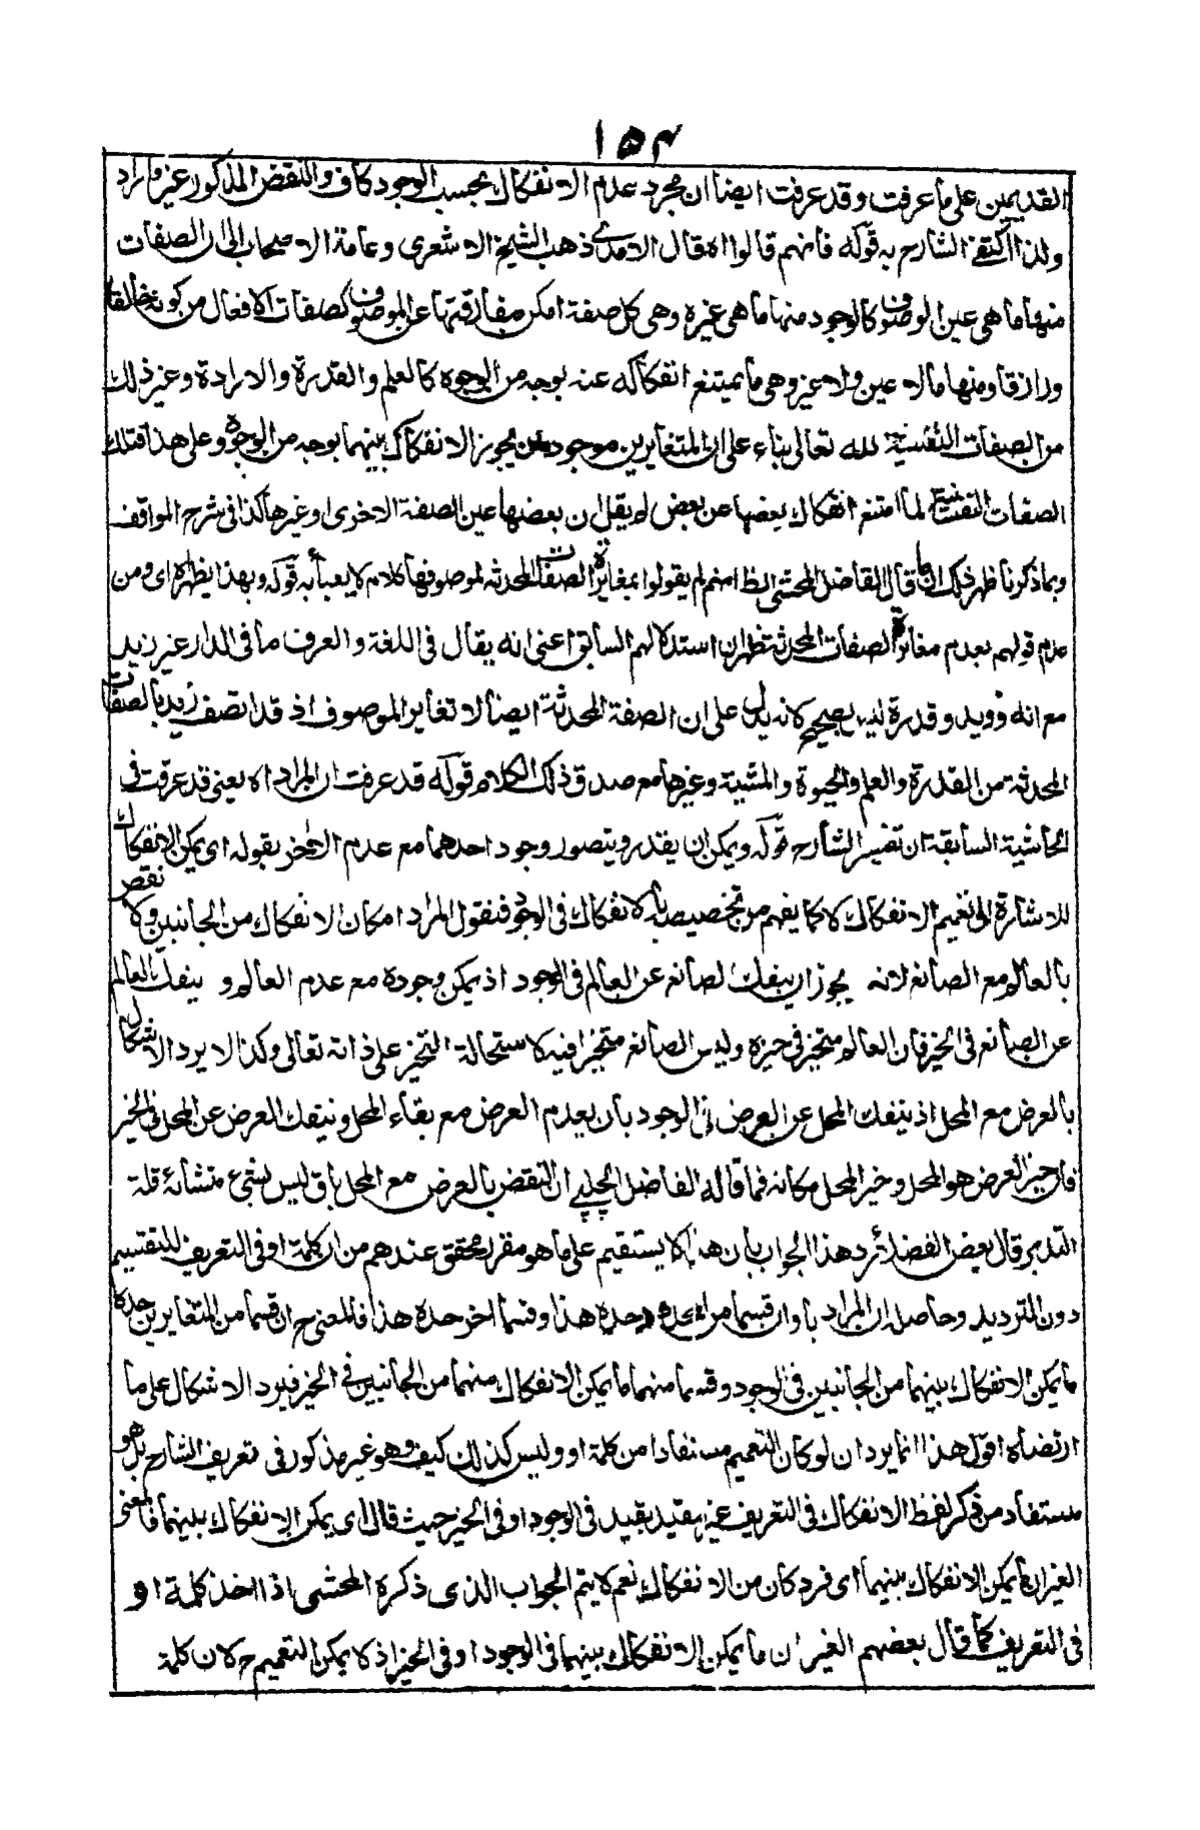 ١٥٤
القديمين على ما عرفت وقد عرفت ايضا ان مجرد عدم الانفكاك بحسب الوجود كاف والنقض المذكور غير وارد
ولذا اكتفى الشارح به قوله فانهم قالوا اه قال الامدى ذهب الشيخ الاشعرى وعامة الاصحاب الى ان الصفات
منها ما هى عين الموصوف كالوجود منها ما هى غيره وهى كل صفة امكن مفارقتها عن الموصوف كصفات الافعال من كونه خالقا
ورازقا ومنها ما لا عين ولا غير وهى ما يمتنع انفكاكه عنه بوجه من الوجوه كالعلم والقدرة والارادة وغير ذلك
من الصفات النفسية لله تعالى بناء على ان المتغايرين موجودان يجوز الانفكاك بينهما بوجه من الوجوه وعلى هذا فتلك
الصفات النفسية لما امتنع انفكاك بعضها عن بعض لم يقل ان بعضها عين الصفة الاخرى او غيرها كذا فى شرح المواقف
وبما ذكرنا ظهر لك ان ما قال القاضل المحشى الظ انهم لم يقولوا بمغايرة الصفات المحدثه لموصوفها كلام لا يعبأ به قوله وبهذا يظهر اى ومن
عدم قولهم بعدم مغايرة الصفات المحدثة ظهر ان استدلالهم السابق اعنى انه يقال فى اللغة والعرف ما فى الدار غير زيد
مع انه ذو يد وقدرة ليس بصحيح لانه يدل على ان الصفة المحدثة ايضا لا تغاير الموصوف اذ قد اتصف زيد بالصفات
المحدثة من القدرة والعلم والحيوة والمشية وغيرها مع صدق ذلك الكلام قوله قد عرفت ان المراد اه يعنى قد عرفت فى
الحاشية السابقة ان تفسير الشارح قوله ويمكن ان يقدر ويتصور وجود احدهما مع عدم الاخر بقوله اى يمكن الانفكاك
للاشارة الى تعميم الانفكاك لا كما يفهم من تخصيصه بالانفكاك فى الوجود فنقول المراد امكان الانفكاك من الجانبين ولا نقض
بالعالم مع الصانع لانه يجوز ان ينفك الصانع عن العالم فى الوجود اذ يمكن وجوده مع عدم العالم و ينفك العالم
عن الصانع فى الحيز فان العالم متحيز فى حيزه وليس الصانع متحيزا فيه لاستحالة التحيز على ذاته تعالى وكذا لا يرد الاشكال
بالعرض مع المحل اذ ينفك المحل عن العرض فى الوجود بان يعدم العرض مع بقاء المحل وينفك العرض عن المحل فى الحيز
فان حيز العرض هو المحل وحيز المحل مكانه فما قاله الفاضل الچلپى ان النقض بالعرض مع المحل باق ليس بشئ منشأه قلة
التدبر قال بعض الفضلاء رد هذا الجواب بان هذا لا يستقيم على ما هو مقرر محقق عندهم من ان كلمة او فى التعريف للتقسيم
دون الترديد وحاصله ان المراد باو ان قسما من المحدود حده هذا وقسما اخر حده هذا فالمعنى ح ان قسما من المتغايرين حده
ما يمكن الانفكاك بينهما من الجانبين فى الوجود وقسما منهما ما يمكن الانفكاك منهما من الجانبين فى الحيز فيرد الاشكال على ما
ارتضاه اقول هذا انما يرد ان لو كان التعميم مستفادا من كلمة او وليس كذلك كيف وهو غير مذكور فى تعريف الشارح بل هو
مستفاد من ذكر لفظ الانفكاك فى التعريف غير مقيد بقيد فى الوجود او فى الحيز حيث قال اى يمكن الانفكاك بينهما فالمعنى
الغيران ما يمكن الانفكاك بينهما اى فرد كان من الانفكاك نعم لا يتم الجواب الذى ذكره المحشى اذا اخذ كلمة او
فى التعريف كما قال بعضهم الغيران ما يمكن الانفكاك بينهما فى الوجود او فى الحيز اذ لا يمكن التعميم ح لان كلمة